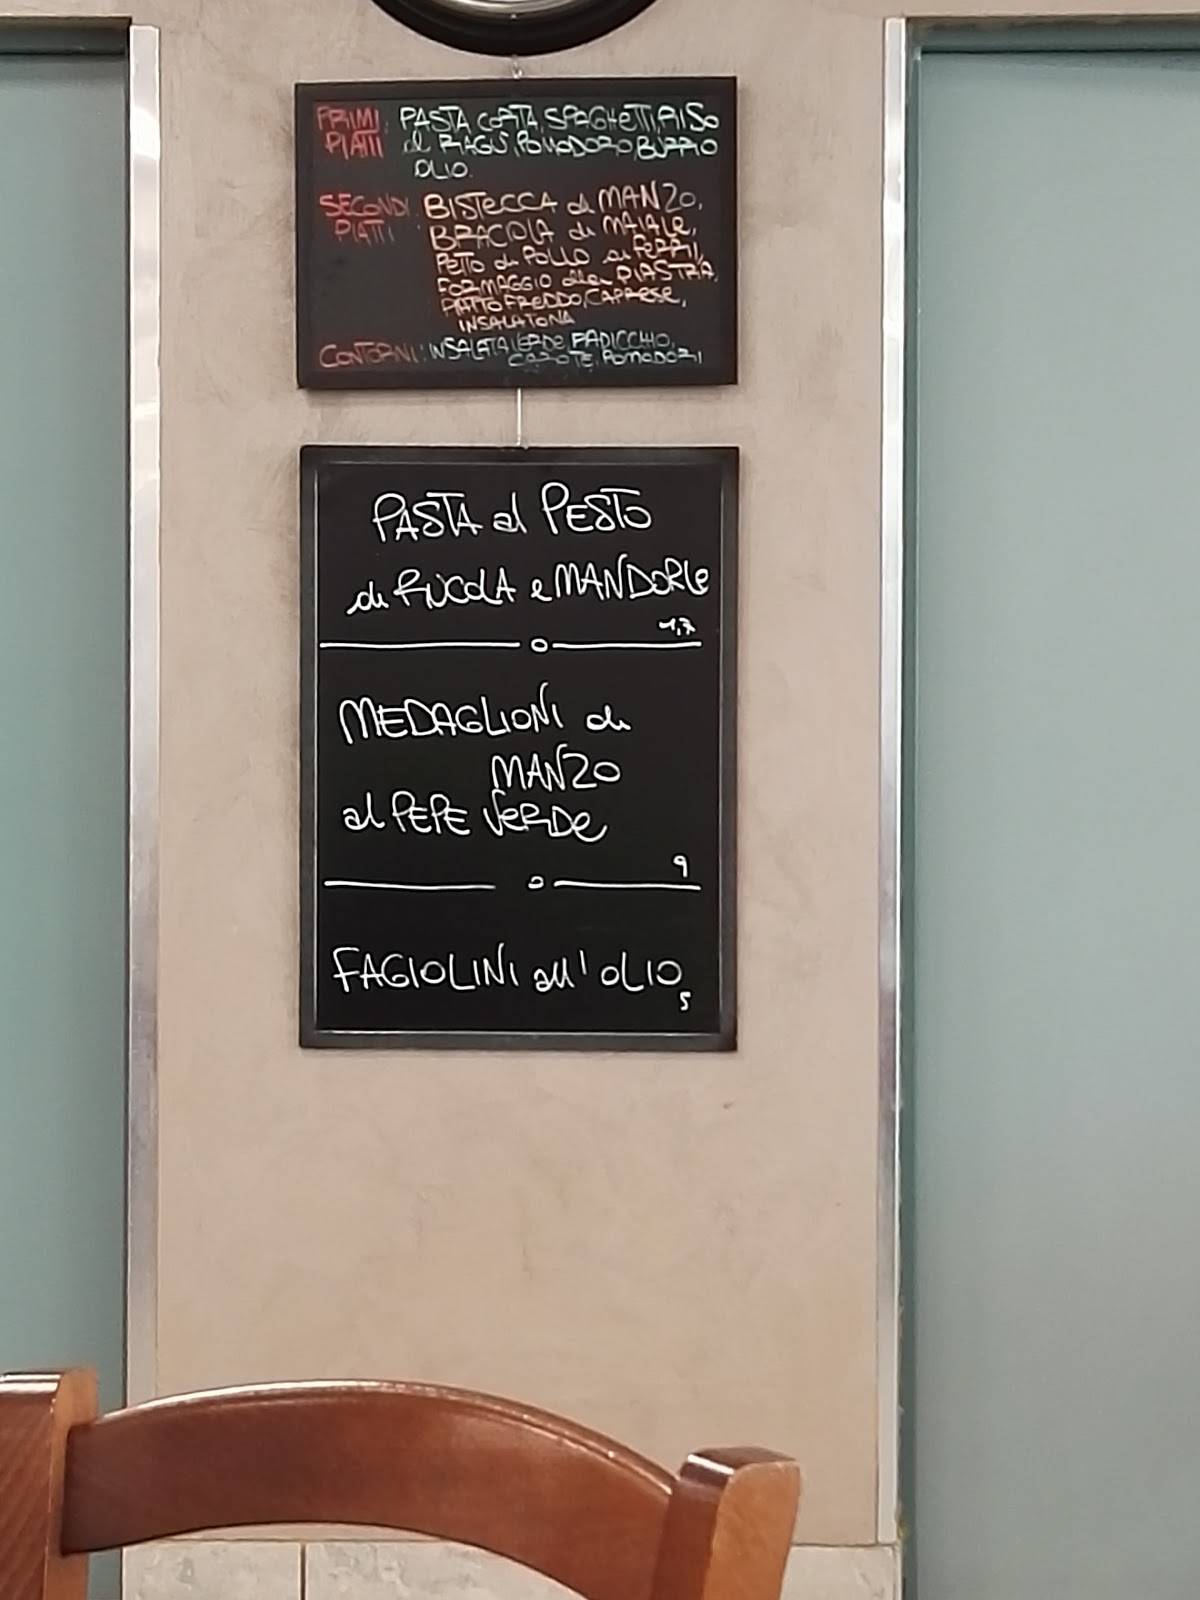 PRIMI PIATTI: PASTA CORTA, SPAGHETTI, RISO
al RAGÙ, POMODORO, BURRO
OLIO.
SECONDI PIATTI: BISTECCA di MANZO,
BRACIOLA di MAIALE,
PETTO di POLLO ai FERRI,
FORMAGGIO alla PIASTRA,
PIATTO FREDDO, CAPRESE,
INSALATONA
CONTORNI: INSALATA VERDE, RADICCHIO,
CAROTE, POMODORI
PASTA al PESTO
di RUCOLA e MANDORLE
1,7
MEDAGLIONI di
MANZO
al PEPE VERDE
9
FAGIOLINI all'OLIO
5